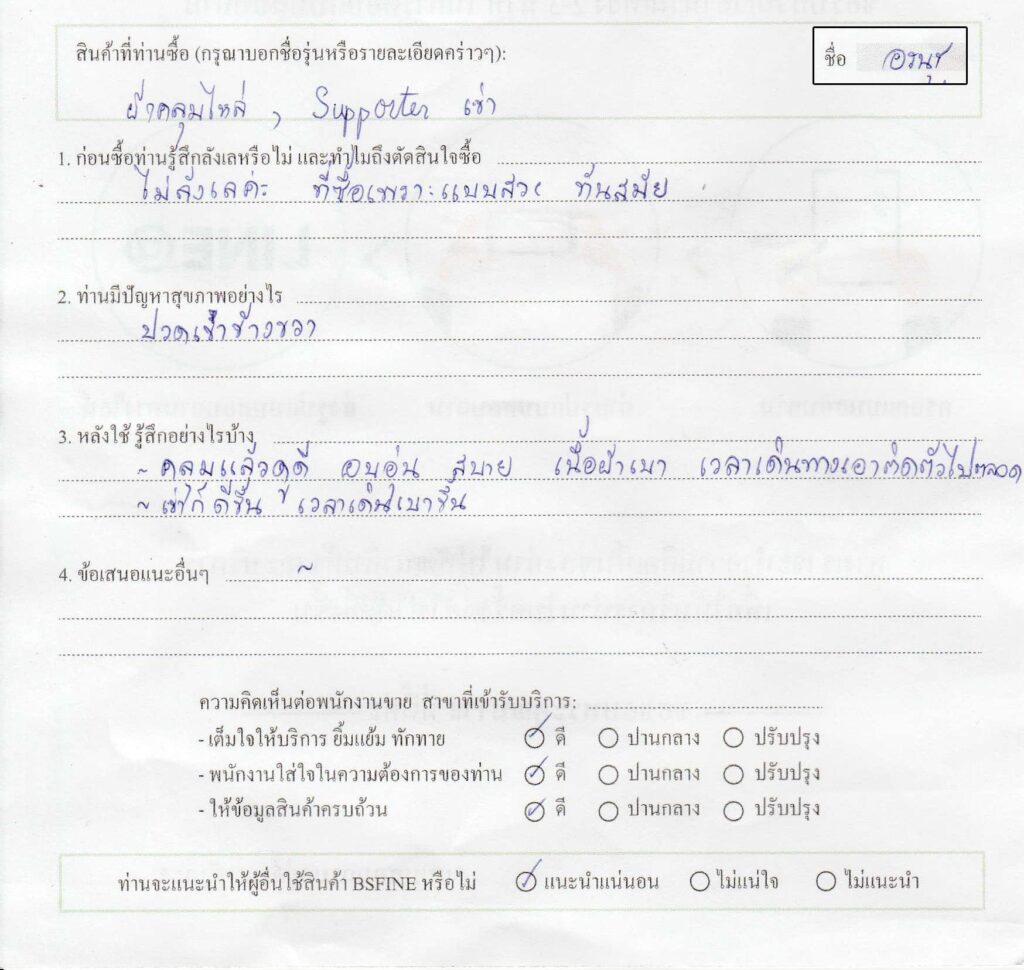 สินค้าที่ท่านซื้อ (กรุณาบอกชื่อรุ่นหรือรายละเอียดคร่าวๆ):
ชื่อ อรนุช
ผ้าคลุมไหล่ , Supporter เข่า
1. ก่อนซื้อท่านรู้สึกลังเลหรือไม่ และทำไมถึงตัดสินใจซื้อ
ไม่ลังเลค่ะ ที่ซื้อเพราะแบบสวย ทันสมัย
2. ท่านมีปัญหาสุขภาพอย่างไร
ปวดเข่าข้างขวา
3. หลังใช้ รู้สึกอย่างไรบ้าง
~ คลุมแล้วดูดี อบอุ่น สบาย เนื้อผ้าเบา เวลาเดินทางเอาติดตัวไปตลอด
~ เข่าก็ดีขึ้น เวลาเดินเบาขึ้น
4. ข้อเสนอแนะอื่นๆ ~
ความคิดเห็นต่อพนักงานขาย สาขาที่เข้ารับบริการ:
- เต็มใจให้บริการ ยิ้มแย้ม ทักทาย ดี ปานกลาง ปรับปรุง
- พนักงานใส่ใจในความต้องการของท่าน ดี ปานกลาง ปรับปรุง
- ให้ข้อมูลสินค้าครบถ้วน ดี ปานกลาง ปรับปรุง
ท่านจะแนะนำให้ผู้อื่นใช้สินค้า BSFINE หรือไม่ แนะนำแน่นอน ไม่แน่ใจ ไม่แนะนำ